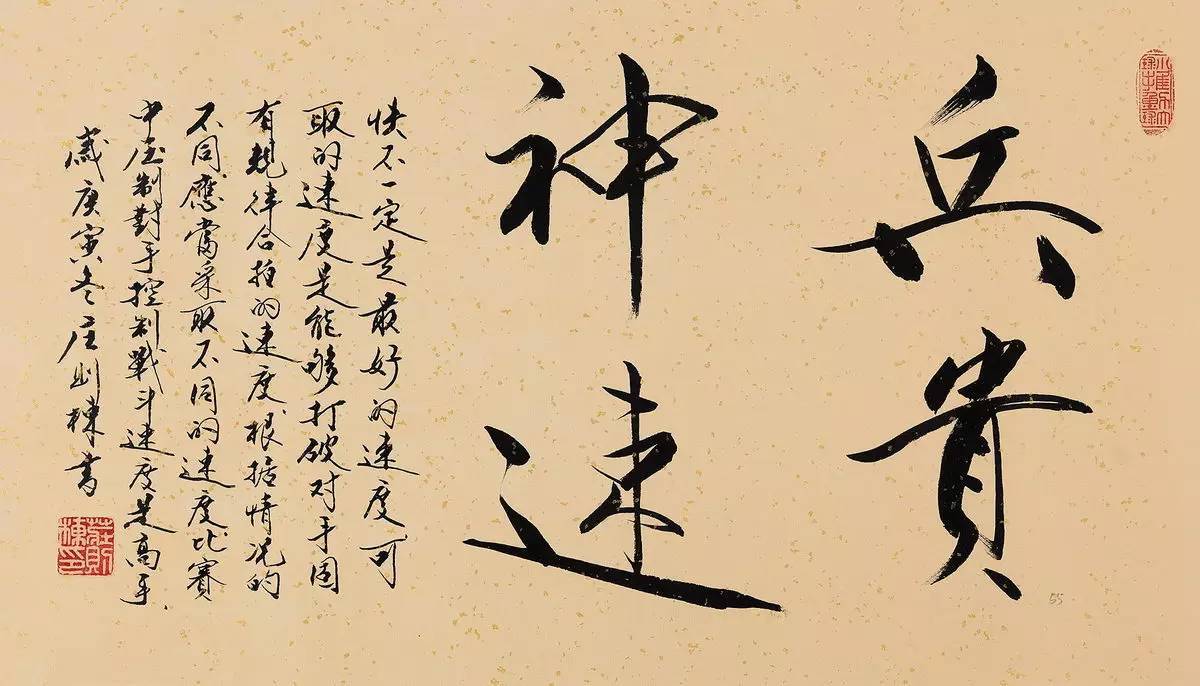 兵貴
神速
快不一定是最好的速度可
取的速度是能够打破对手固
有規律合拍的速度根据情况的
不同應當采取不同的速度比賽
中壓制對手控制戰斗速度是高手
歲庚寅冬庄则棟書
莊則棟印
55